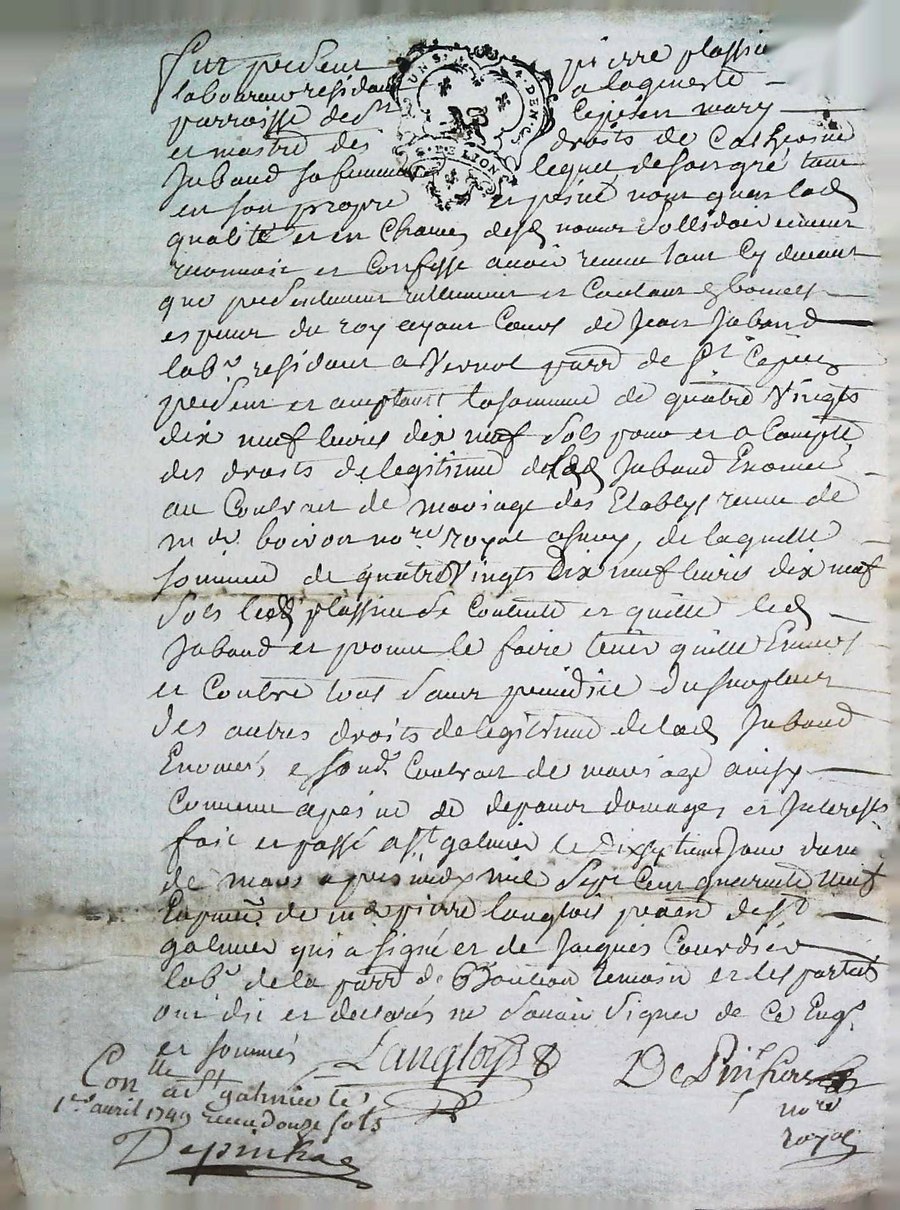 fut present pierre plassie
laboureur resident a laqueste
parroisse de St Cepien mary
et maitre des droits de Catherine
Jaband sa femme lequel de son gré tant
en son propre et privé nom qu'en lad
qualité et en Chacun desd noms sollidairement
reconnoit et Confesse avoir receu tant Cy devant
que presentement reellement et Contant
especes du roy ayant Cours de Jean Jaband
labr residant a Vernol parr de St Cepien
present et acceptant la somme de quatre Vingts
dix neuf livres dix neuf sols pour et a Compte
des droits de legitime de lad Jaband Enoncés
au Contrat de mariage des Etablys receu de
me boivon nore royal de laquelle
somme de quatre Vingts dix neuf livres dix neuf
sols led plassie se Contente et quitte led
Jaband et promet le faire tenir quitte Envers
et Contre tous sans prejudice du surplus
des autres droits de legitime de lad Jaband
Enoncés sond Contrat de mariage ainsy
Convenu a peine de depans domages et Interests
fait et passé a St galmier le dixseptieme Jour
de mars apres midy mil sept cent quarente neuf
En pnce de me pierre langlois de St
galmier qui a signé et de Jacques Courdier
labr de la parr de temoin et les parties
ont dit et declarés ne savoir signer de Ce Enqs
et sommés Langlois
Conlle a St galmier le
1er avril 1749 receu douze sols
nore
royal